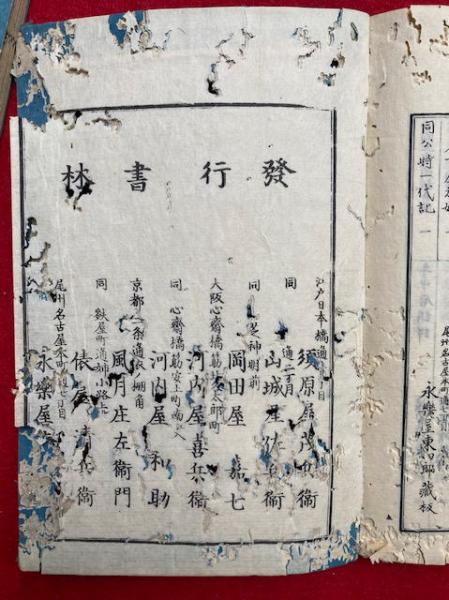 同公時一代記 一
尾州名古屋本町通七丁目
永樂屋東四郎藏板
發行書林
江戸日本橋通丁目
須原屋茂兵衞
同 通二丁目
山城屋佐兵衞
同 芝神明前
岡田屋嘉七
大阪心齋橋筋太郎町
河内屋喜兵衞
同 心齋橋筋安土町南江入
河内屋和助
京都二条通衣棚角
風月庄左衞門
同 麩屋町通姉小路上
俵屋清兵衞
尾州名古屋本町通七丁目
永樂屋